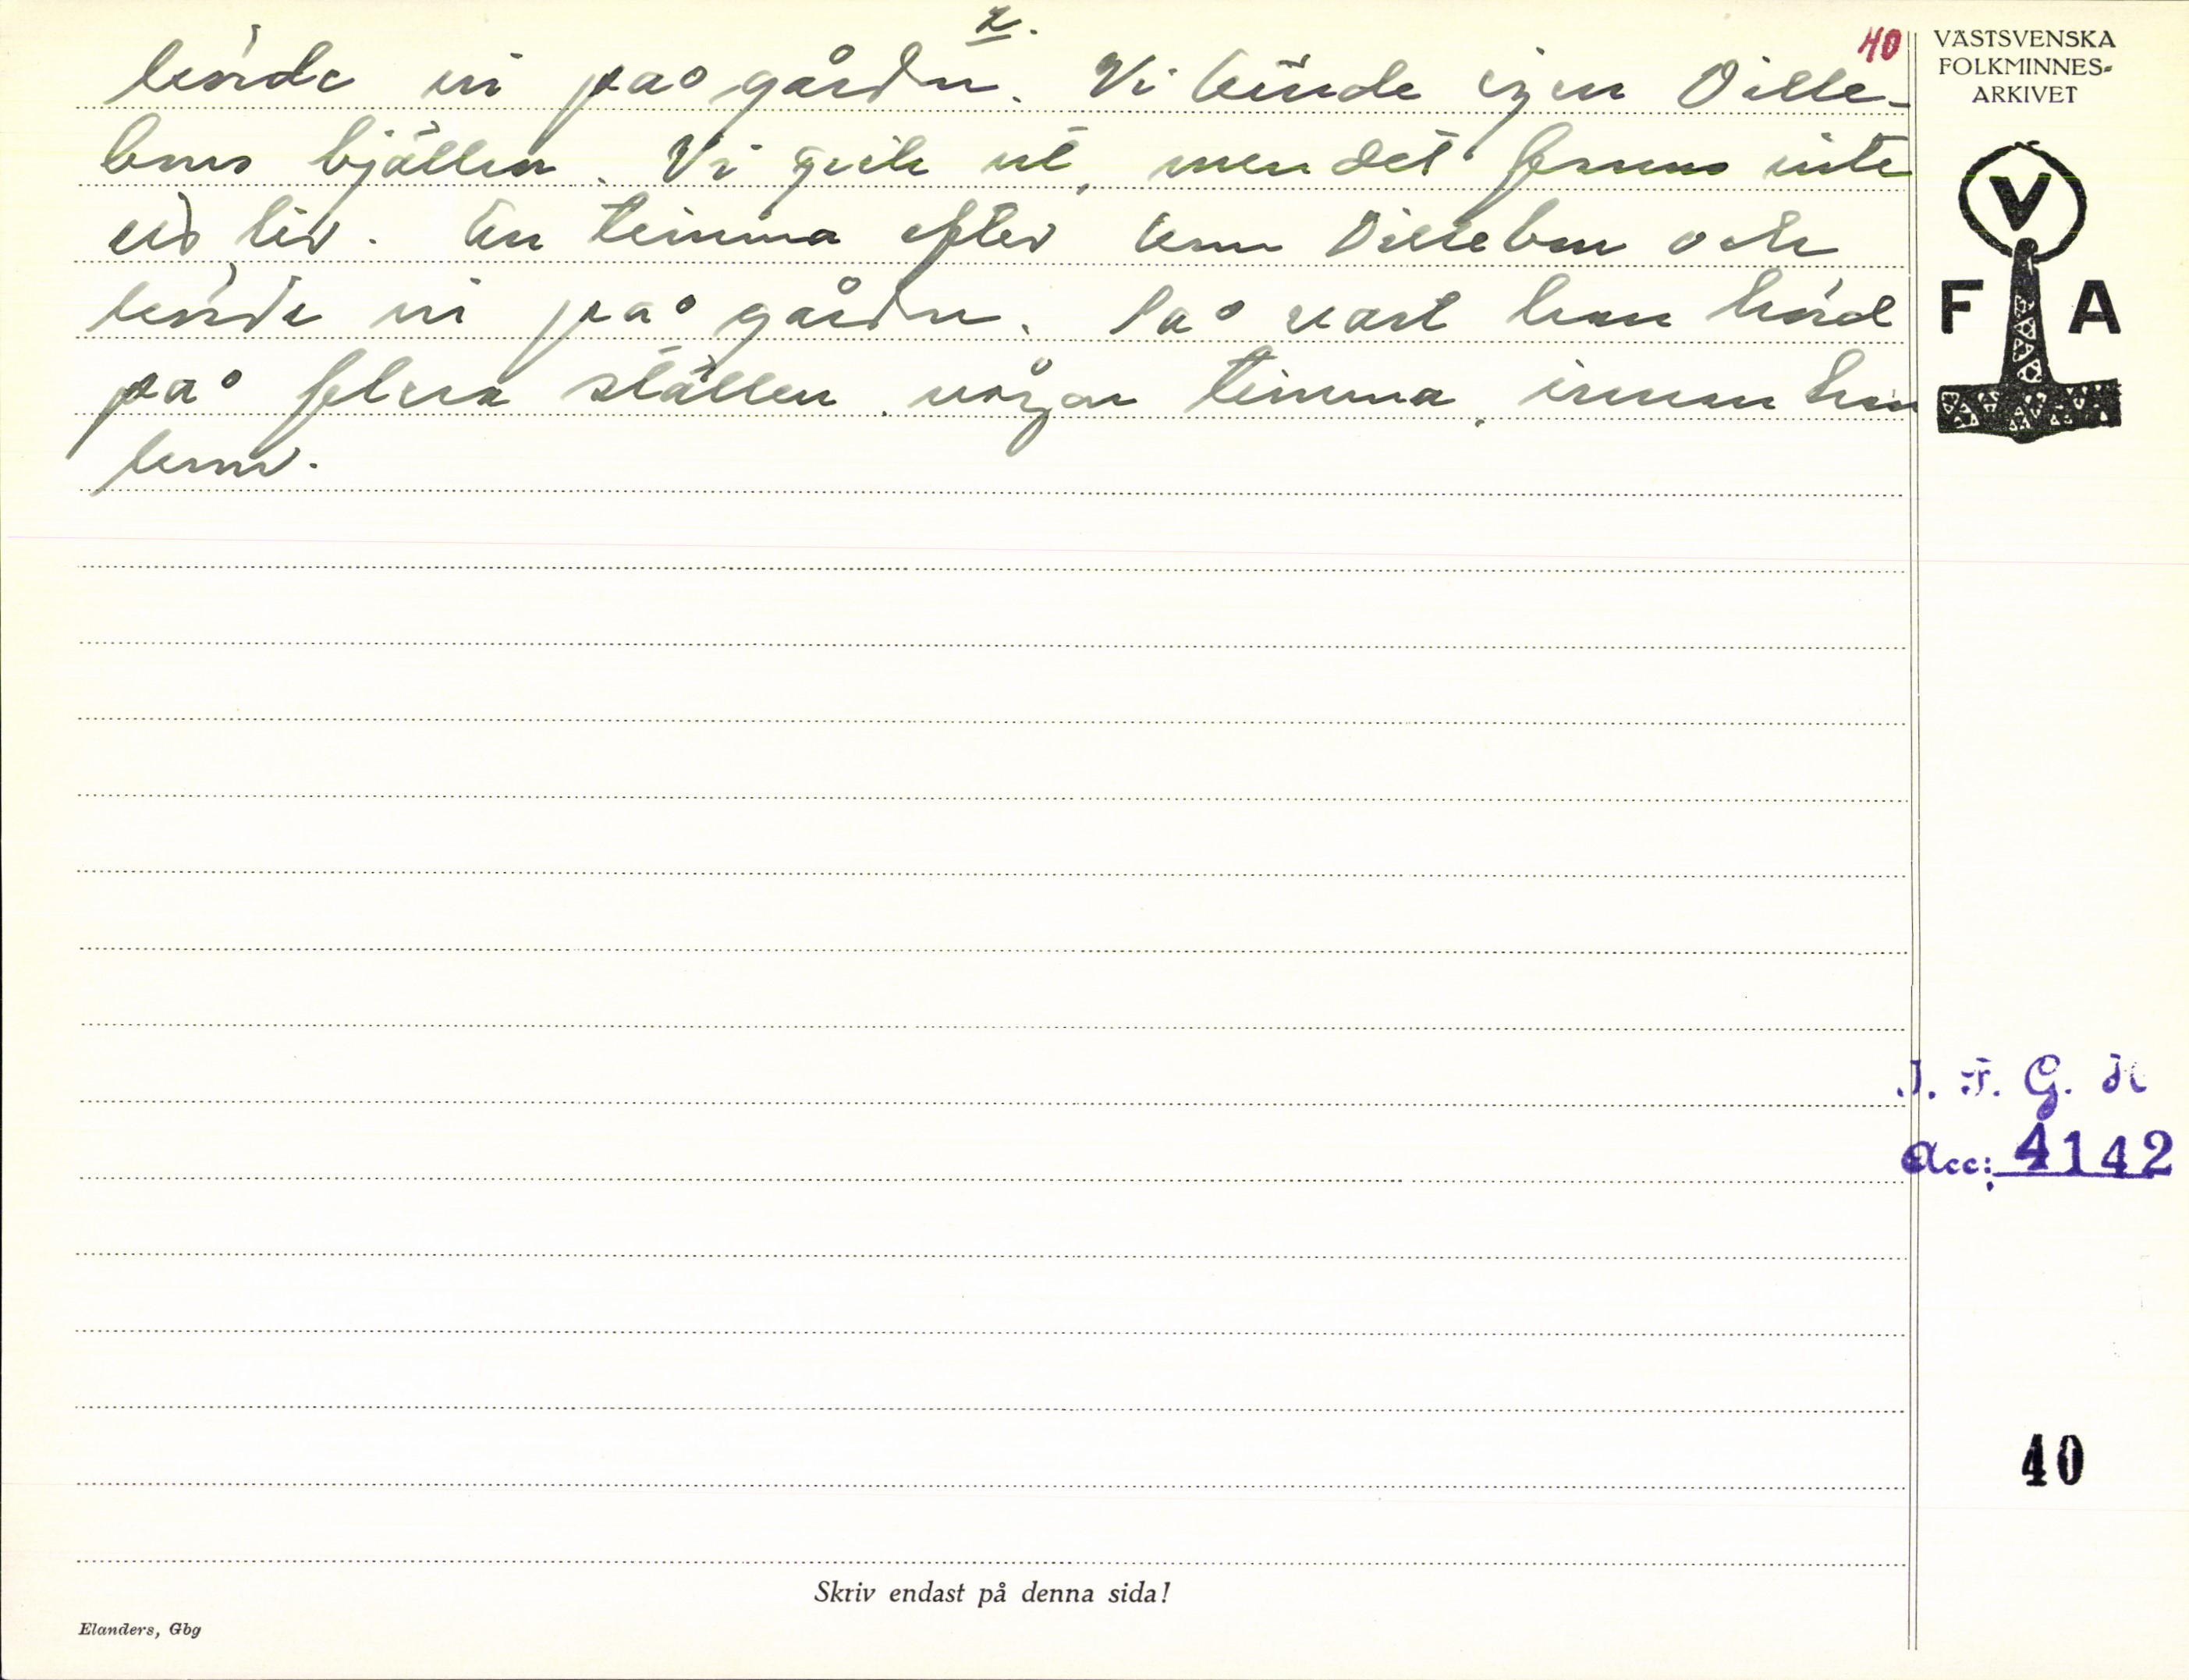 2.
40
körde in på gården. Vi kände igen Dille-
bons bjällra. Vi gick ut, men det fanns inte
ett liv. En timma efter kom Dillebon och
körde in på gården. Så vart han hörd
på flera ställen någon timma, innan han
kom.
VÄSTSVENSKA
FOLKMINNES-
ARKIVET
V
F A
I. F. G. H
Acc: 4142
40
Skriv endast på denna sida!
Elanders, Gbg